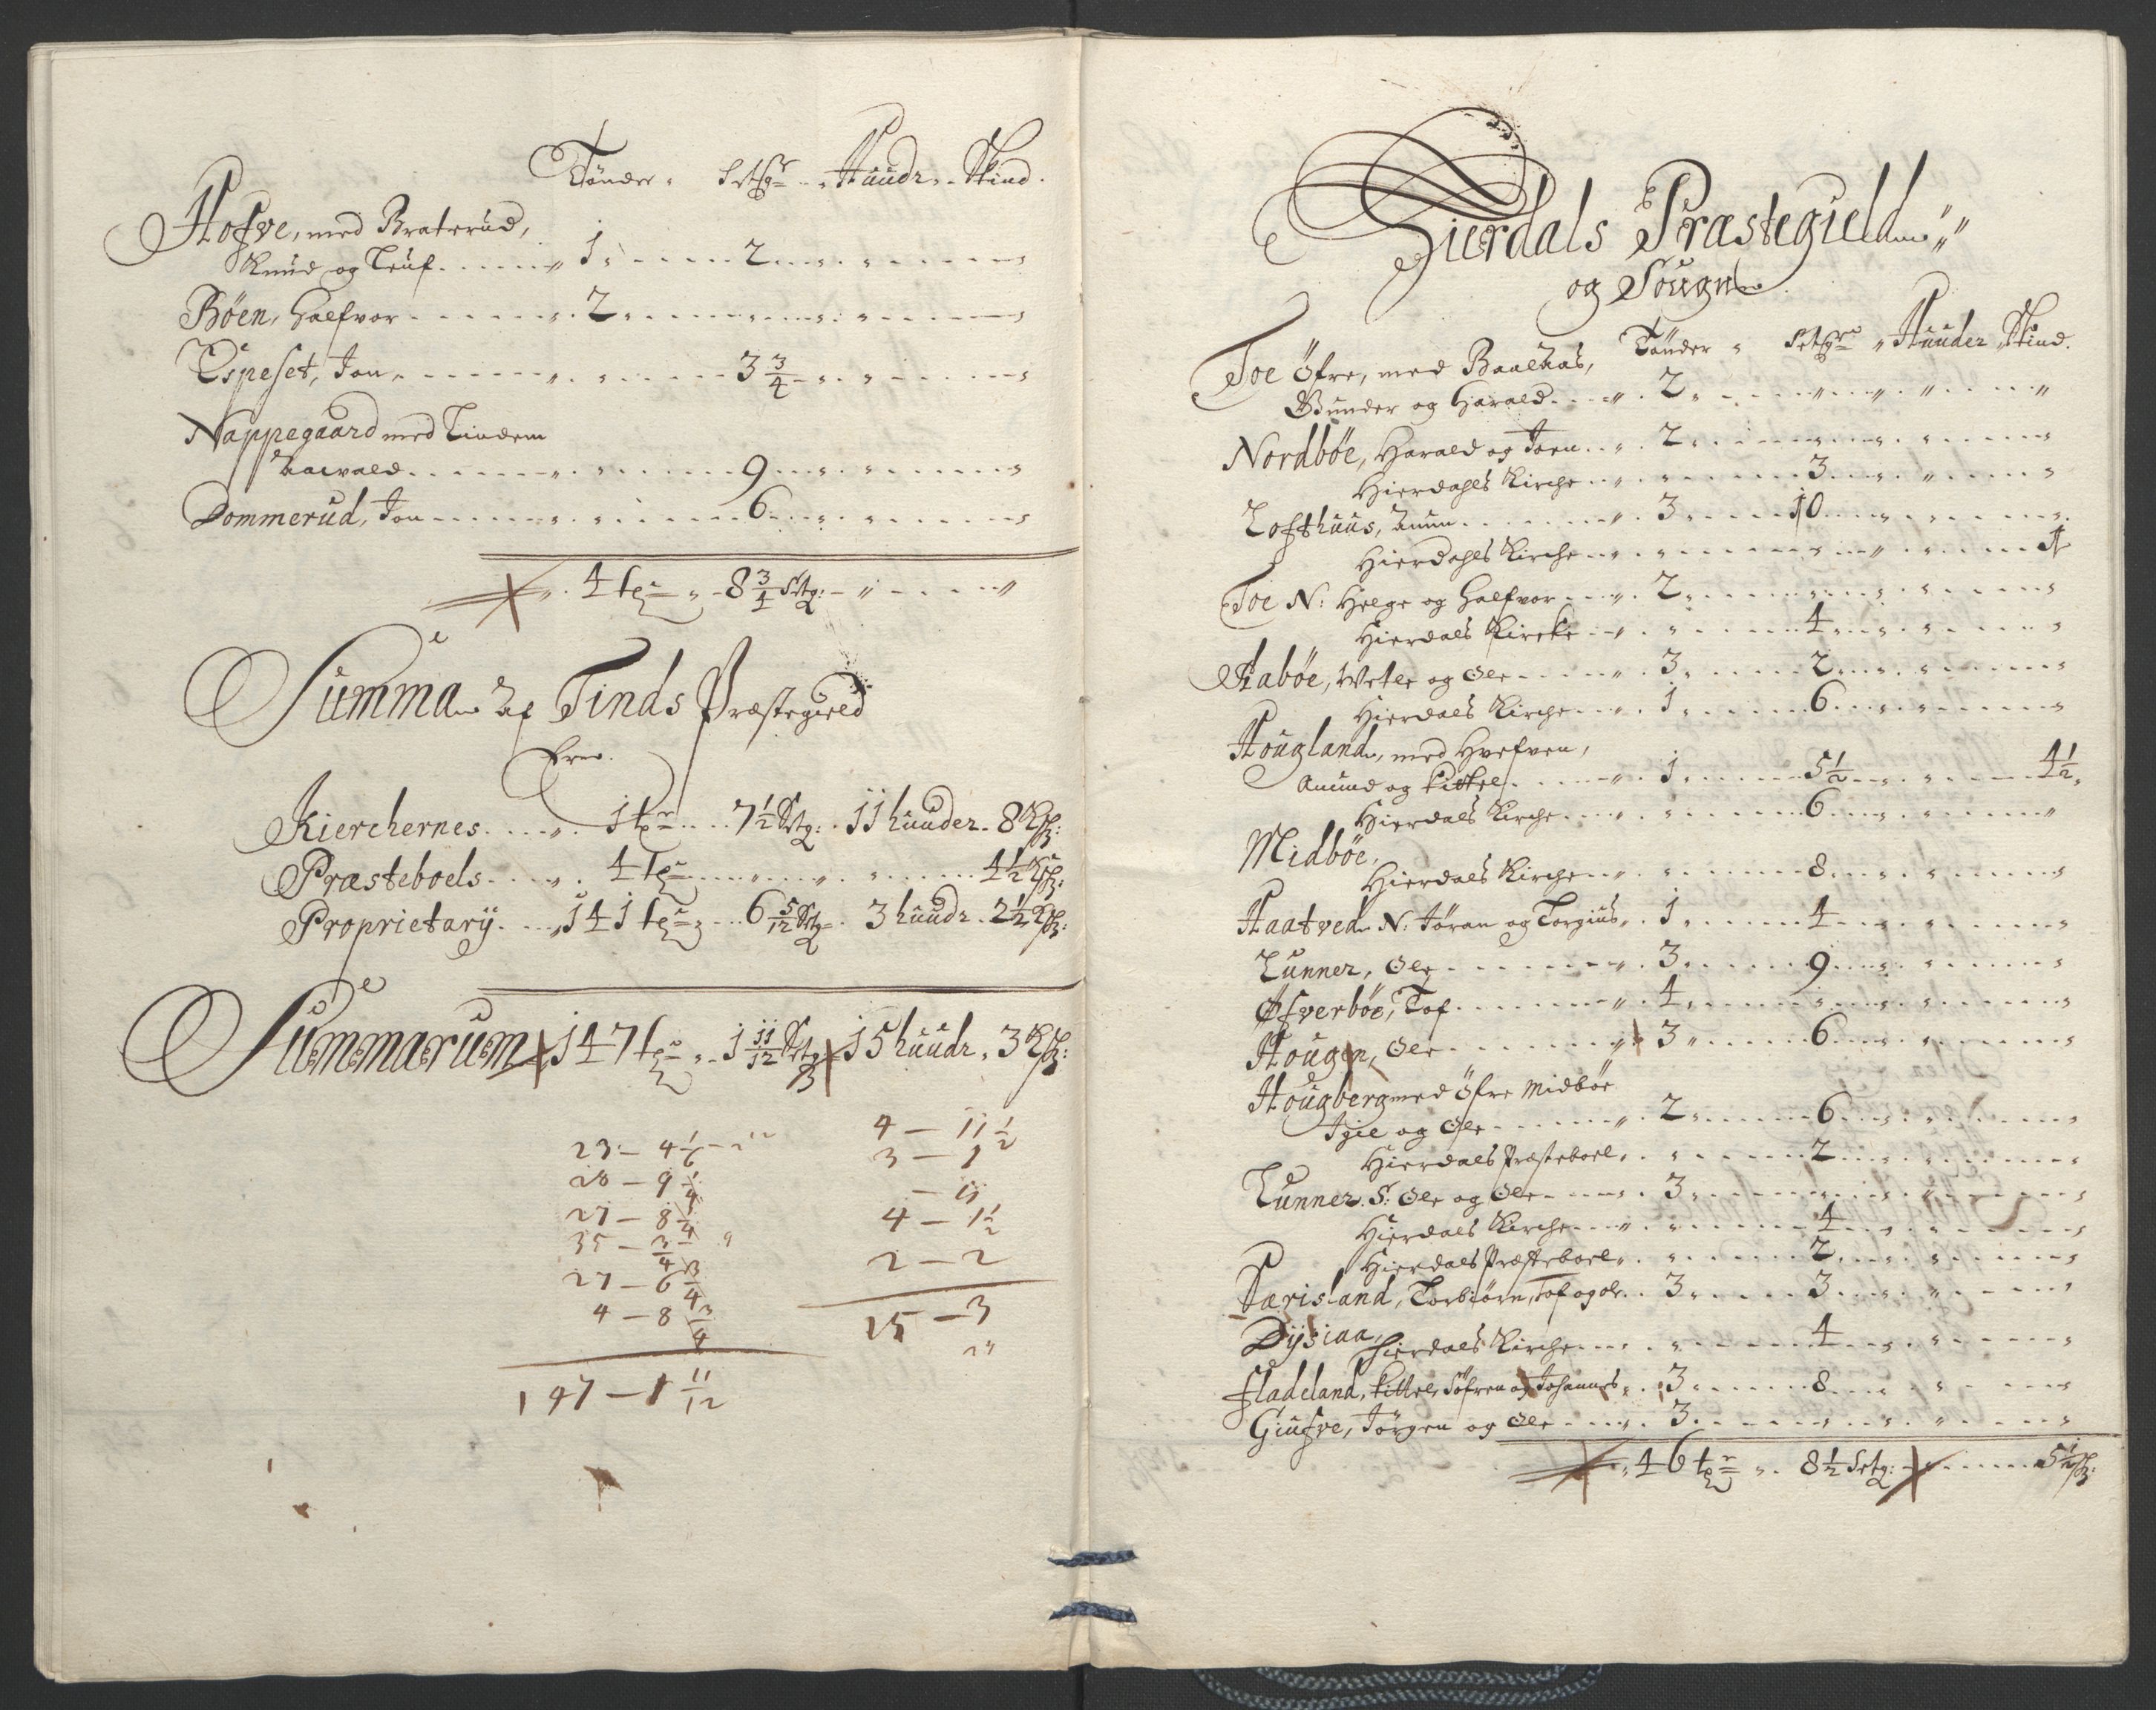 Tönder " Setg: " Huudr " Skind.
Hofve, med Braterud,
Knud og Leuf " 1 " 2 " "
Böen, Halfvor " 2 " " "
Espeset, Jon " " 3 3/4 " "
Nappegaard med Lindem
Aavald " " 9 " "
Dommerud, Jon " " 6 " "
" 4 tr " 8 3/4 Setg: " "
Summa Af Tinds Præstegield
Kierchernes " 1 tr 7 1/2 Setg: 11 huuder 8
Præsteboels " 4 tr " " 4 1/2
Proprietarij " 141 tr 6 5/12 Setg 3 huudr 2 1/2
Summarum 147 tr " 1 11/12 Setg 15 huudr " 3
23 — 4 1/6
28 — 9 1/4
27 — 8 1/4
35 — 3/4
27 — 6 3/4
4 — 8 3/4
147 — 1 11/12
4 — 11 1/2
3 — 1
— 11
4 — 1 1/2
2 — 2
15 — 3
Hierdals Præstegield
og Sougn
Tönder " Setg " Huuder " Skind.
Toe Öfre, med Baalkas,
Gunder og Harald " 2 " " " "
Nordböe, Harald og Joen " 2 " " "
Hierdahls Kirche " " 3 " "
Lofthuus, Anun " 3 10 " "
Hierdahls Kirche " " " " 1
Toe N: Helge og Halfvor " 2 " " "
Hierdals Kircke " " 4 " "
Aaböe, Wetle og Ole " 3 2 " "
Hierdals Kirche " 1 6 " "
Hougland, med Hvefven,
Amund og Kittel " 1 5 1/2 " 4 1/2 "
Hierdals Kirche " " 6 " "
Midböe,
Hierdals Kirche " " 8 " "
Haatved N: Jöran og Torgius " 1 4 " "
Lunner, Ole " 3 9 " "
Öfverböe, Tof " 4 " " "
Hougen, Ole " 3 " 6 " "
Hougberg med Öfre Midböe
Igil og Ole " 2 6 " "
Hierdals Præsteboel " " 2 " "
Lunner S: Ole og Ole " 3 " " "
Hierdals Kirche " " 4 " "
Hierdals Præsteboel " " 2 " "
Særisland, Torbiörn, Tof og Ol " 3 3 " "
Dysiaa, Hierdals Kirche " " 4 " "
Fladeland, Kittel, Söfren og Johannes " 3 8 " "
Giufve, Jörgen og Ole " 3 " " "
" 46 tr " 8 1/2 Setg: 5 1/2